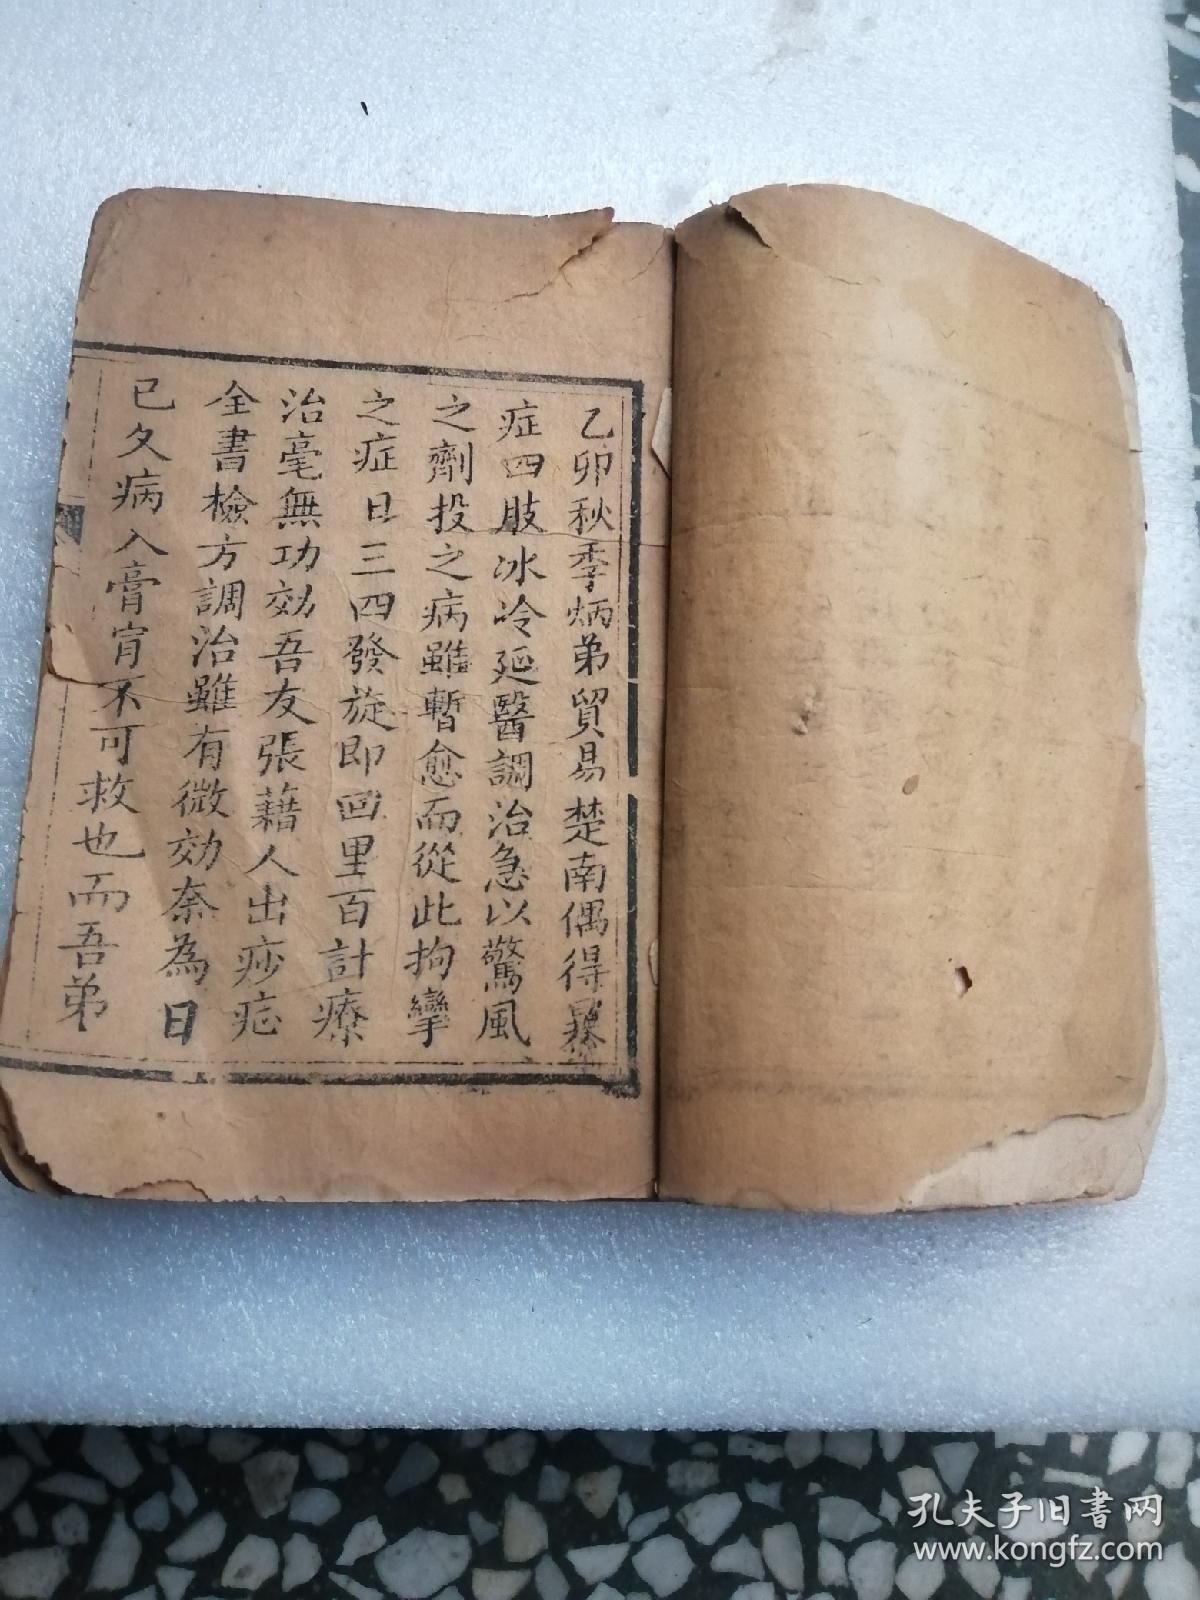 乙卯秋季炳弟貿易楚南偶得暴
症四肢冰冷延醫調治急以驚風
之劑投之病雖暫愈而從此拘攣
之症日三四發旋即回里百計療
治毫無功効吾友張藉人出痧症
全書檢方調治雖有微効奈為日
已久病入膏肓不可救也而吾弟
孔夫子旧书网
www.kongfz.com